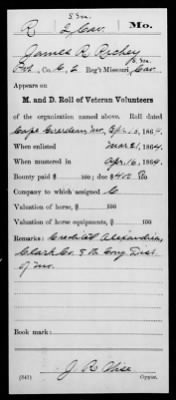 S. m.
R 2 Cav. Mo.
James R. Richey
Pvt., Co. C, 2 Reg't Missouri S.m. Cav.
Appears on
M. and D. Roll of Veteran Volunteers
of the organization named above. Roll dated
Cape Girardeau, Mo, Apl. 10, 1864.
When enlisted Mar 21, 1864.
When mustered in Apr. 16, 1864.
Bounty paid $ 100; due $ 400 100
Company to which assigned C
Valuation of horse, $ 100
Valuation of horse equipments, $ 100
Remarks: Credited Alexandria,
Clark Co. 8 th Cong Dist
of Mo.
Book mark:
J. R. Olise
(341) Copyist.